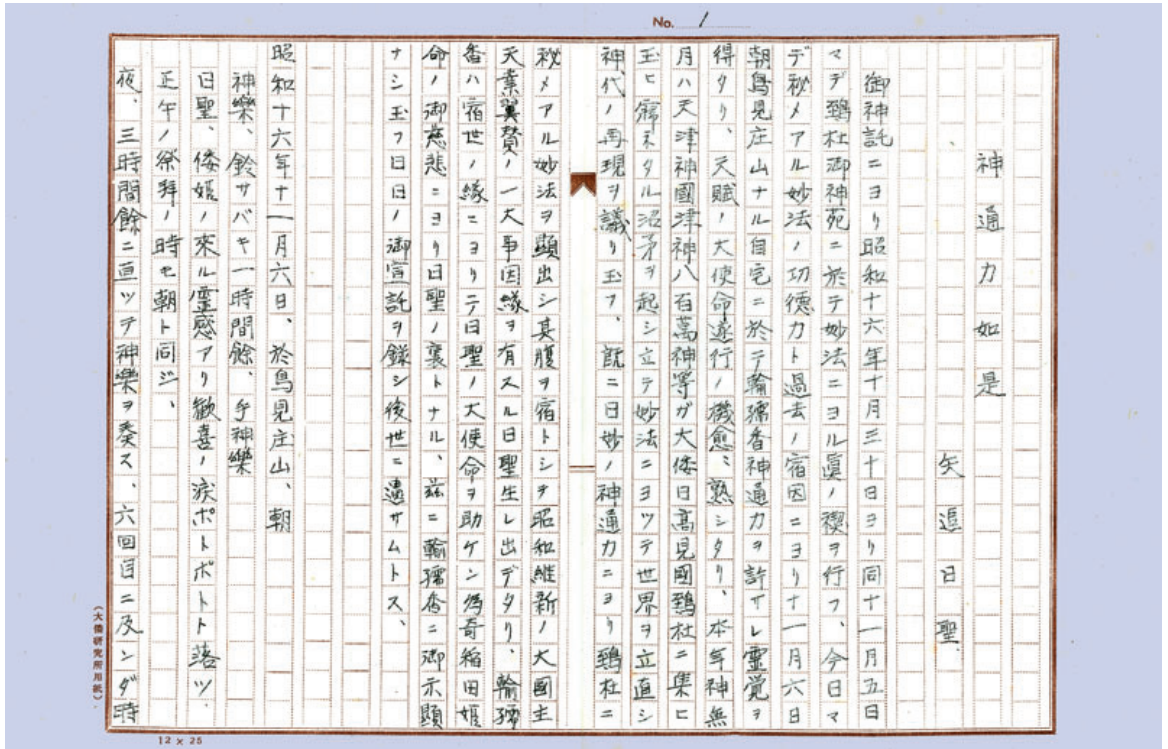 No. 1
神通力如是
矢追日聖
御神託ニヨリ昭和十六年十月三十日ヨリ同十一月五日
マデ鵄杜御神苑ニ於テ妙法ニヨル眞ノ禊ヲ行フ、今日マ
デ秘メアル妙法ノ功德力ト過去ノ宿因ニヨリ十一月六日
朝鳥見庄山ナル自宅ニ於テ輪孺香神通力ヲ許サレ靈覚ヲ
得タリ、天賦ノ大使命遂行ノ機愈〻熟シタリ、本年神無
月ハ天津神國津神八百萬神等ガ大倭日高見國鵄杜ニ集ヒ
玉ヒ寤ネタル沼矛ヲ起シ立テ妙法ニヨツテ世界ヲ立直シ
神代ノ再現ヲ議リ玉フ、既ニ日妙ノ神通力ニヨリ鵄杜ニ
秘メアル妙法ヲ顕出シ其腹ヲ宿トシテ昭和維新ノ大國主
天業翼賛ノ一大事因緣ヲ有スル日聖生レ出デタリ、輪孺
香ハ宿世ノ緣ニヨリテ日聖ノ大使命ヲ助ケン為奇稲田姫
命ノ御慈悲ニヨリ日聖ノ裏トナル、茲ニ輪孺香ニ御示顕
ナシ玉フ日日ノ御宣託ヲ錄シ後世ニ遺サムトス、
昭和十六年十一月六日、於鳥見庄山、朝
神樂、鈴サバキ一時間餘、手神樂
日聖、倭姫ノ來ル霊感アリ歓喜ノ涙ポトポト落ツ
正午ノ祭拜ノ時モ朝ト同ジ、
夜、三時間餘ニ亘ツテ神樂ヲ奏ス、六回目ニ及ンダ時
(大倭研究所用紙)
12 × 25